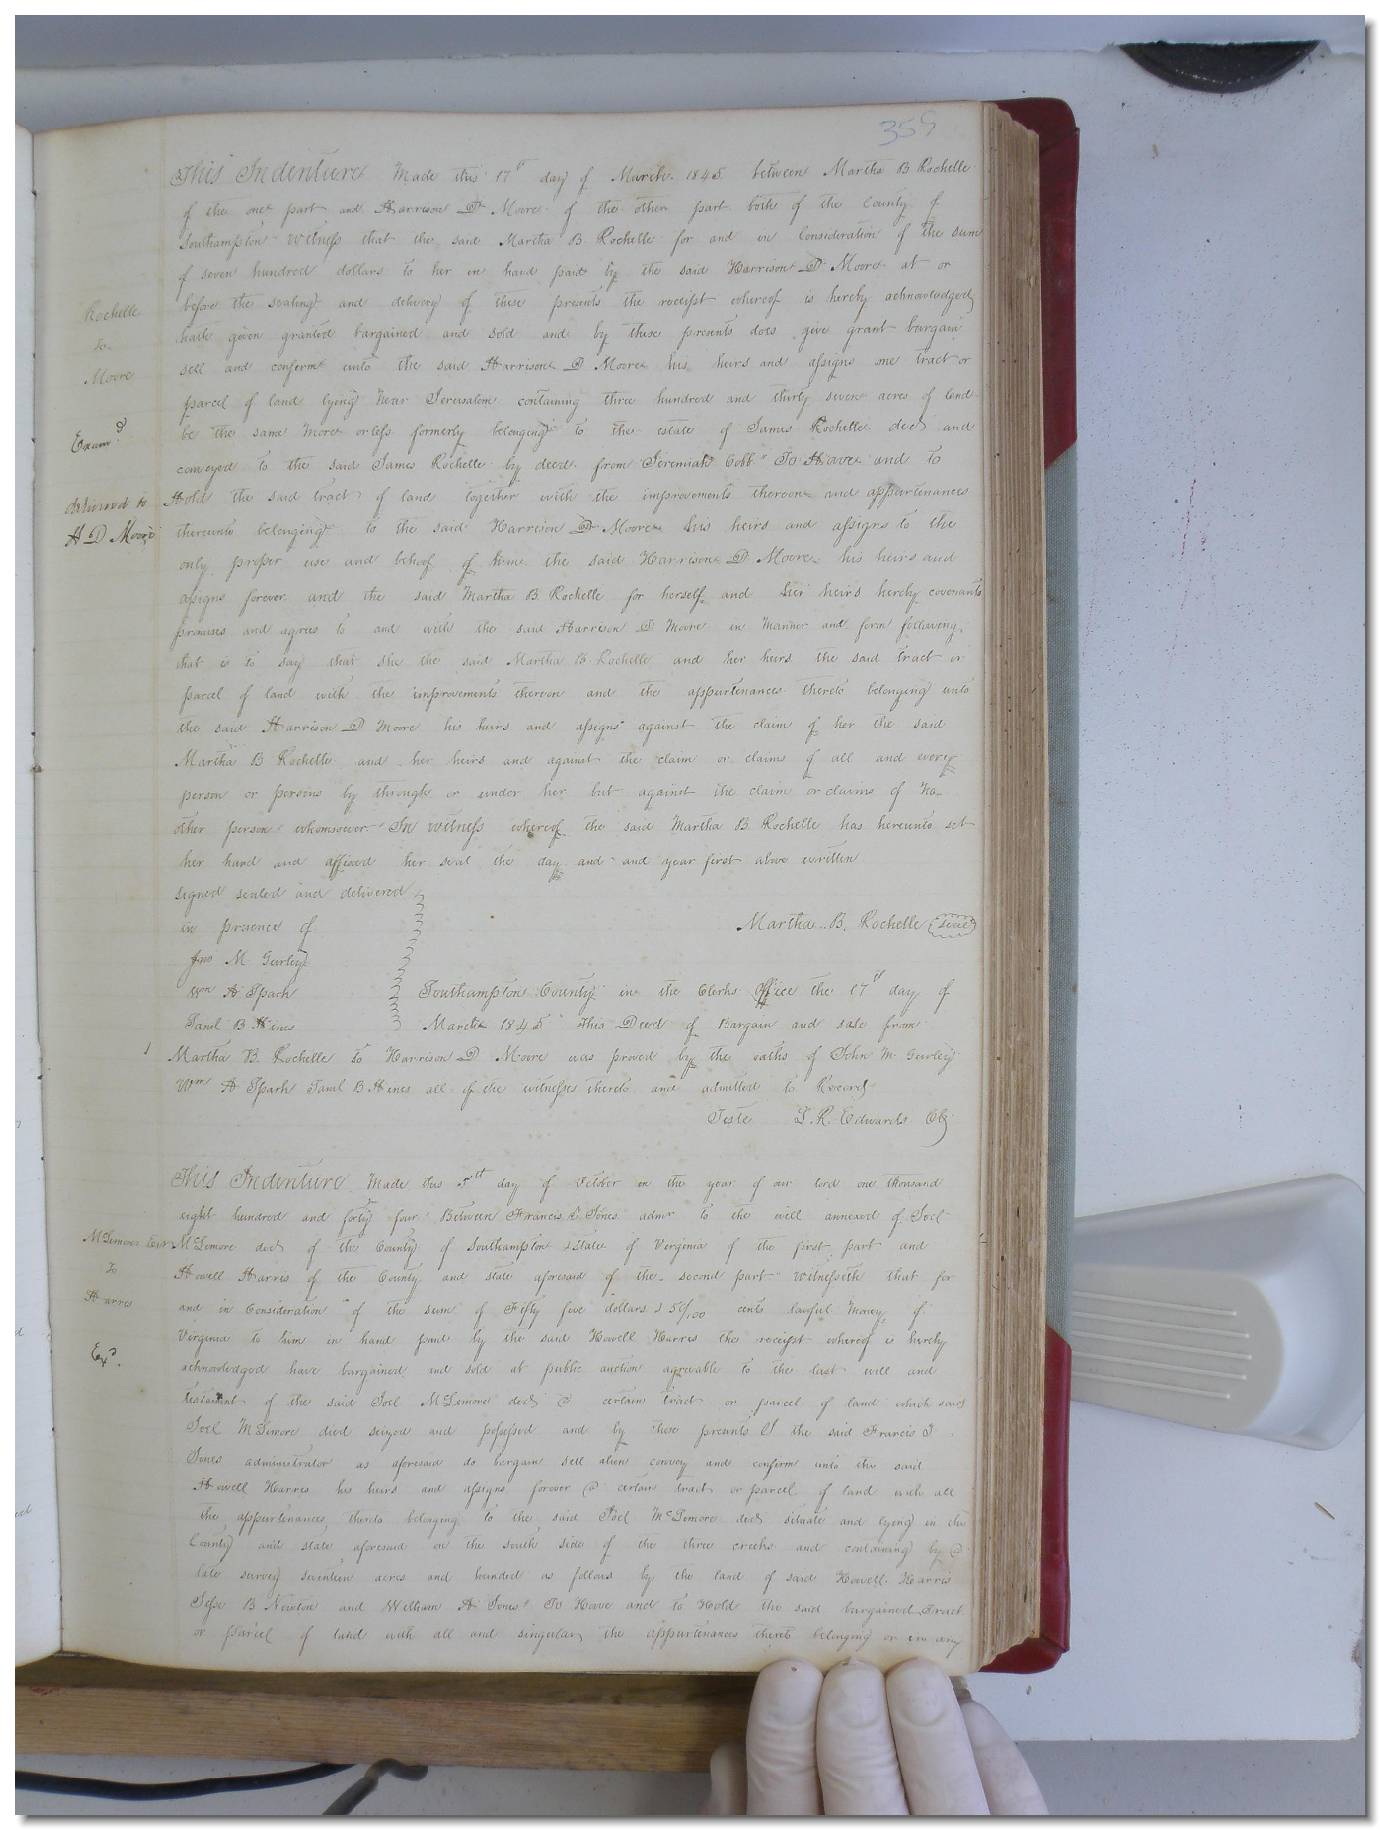 359
This Indenture Made this 17th day of March 1845 between Martha B Rochelle
of the one part and Harrison D Moore of the other part both of the County of
Southampton Witness that the said Martha B. Rochelle for and in Consideration of the sum
of seven hundred dollars to her in hand paid by the said Harrison D Moore at or
before the sealing and delivery of these presents the receipt whereof is hereby acknowledged
hath given granted bargained and sold and by these presents does give grant bargain
sell and confirm unto the said Harrison D Moore his heirs and assigns one tract or
parcel of land lying Near Jerusalem containing three hundred and thirty seven acres of land
be the same More or less formerly belonging to the estate of James Rochelle decd and
conveyed to the said James Rochelle by deed from Jeremiah Cobb" To Have and to
Hold the said tract of land together with the improvements thereon and appurtenances
thereunto belonging to the said Harrison D Moore his heirs and assigns to the
only proper use and behoof of him the said Harrison D Moore his heirs and
assigns forever and the said Martha B. Rochelle for herself and her heirs hereby covenants
promises and agrees to and with the said Harrison D Moore in Manner and form following,
that is to say that she the said Martha B Rochelle and her heirs the said tract or
parcel of land with the improvements thereon and the appurtenances thereto belonging unto
the said Harrison D Moore his heirs and assigns against the claim of her the said
Martha B Rochelle and her heirs and against the claim or claims of all and every
person or persons by through or under her but against the claim or claims of no
other person whomsoever In Witness whereof the said Martha B Rochelle has hereunto set
her hand and affixed her seal the day and and year first above written
signed sealed and delivered
in presence of
Martha B. Rochelle (seal)
Jno M Gurley
Wm A Spark
Saml B Hines
Southampton County in the Clerks Office the 17th day of
March 1845 This Deed of Bargain and sale from
Martha B. Rochelle to Harrison D Moore was proved by the oaths of John M Gurley
Wm A Spark Saml B Hines all of the witnesses thereto and admitted to Record
Teste L. R. Edwards Clk
Rochelle
To
Moore
Examd
delivered to
H D Moore
This Indenture Made this 5th day of October in the year of our lord one thousand
eight hundred and forty four Between Francis J Jones admr to the will annexed of Joel
McLemore decd of the County of Southampton & State of Virginia of the first part and
Howell Harris of the County and state aforesaid of the second part Witnesseth that for
and in Consideration of the sum of Fifty five dollars & 50/100 cents lawful Money of
Virginia to him in hand paid by the said Howell Harris the receipt whereof is hereby
acknowledged have bargained and sold at public auction agreeable to the last will and
testament of the said Joel McLemore decd a certain tract or parcel of land which said
Joel McLemore died seized and possessed and by these presents I the said Francis J
Jones administrator as aforesaid do bargain sell alien convey and confirm unto the said
Howell Harris his heirs and assigns forever a certain tract or parcel of land with all
the appurtenances thereto belonging to the said Joel McLemore decd situate and lying in the
County and state aforesaid on the south side of the three creeks and containing by a
late survey seventeen acres and bounded as follows by the land of said Howell Harris
Jesse B Newton and William A Jones" To Have and to Hold the said bargained Tract
or parcel of land with all and singular the appurtenances thereto belonging or in any
McLemores
To
Harris
Exd.